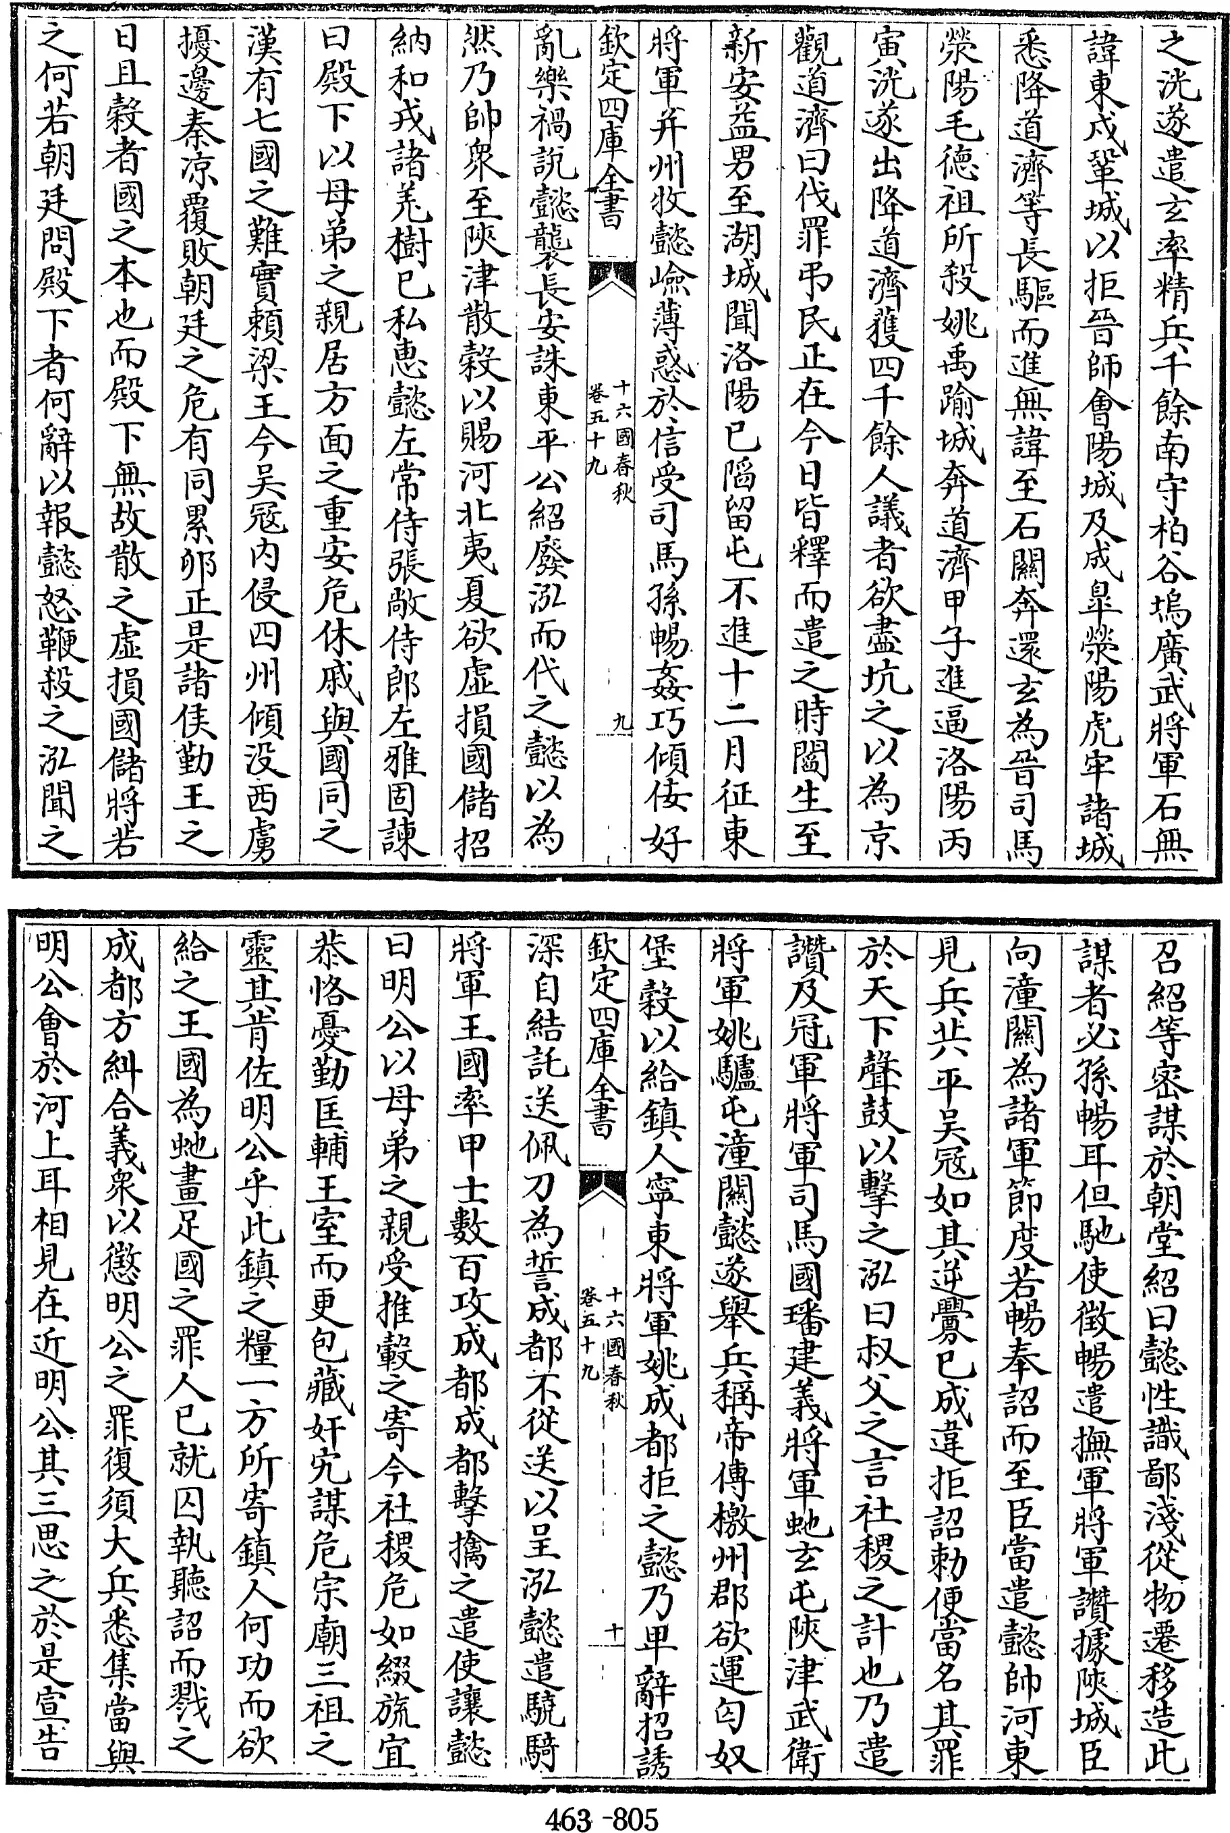 之洸遂遣玄率精兵千餘南守柏谷塢廣武將軍石無
諱東戍鞏城以拒晉師會陽城及成臯滎陽虎牢諸城
悉降道濟等長驅而進無諱至石關奔還玄為晉司馬
滎陽毛德祖所殺姚禹踰城奔道濟甲子進逼洛陽丙
寅洸遂出降道濟獲四千餘人議者欲盡坑之以為京
觀道濟曰伐罪弔民正在今日皆釋而遣之時閻生至
新安益男至湖城聞洛陽已陷留屯不進十二月征東
將軍并州牧懿嶮薄惑於信受司馬孫暢姦巧傾佞好
欽定四庫全書
十六國春秋
卷五十九
九
亂樂禍説懿襲長安誅東平公紹廢泓而代之懿以為
然乃帥衆至陝津散穀以賜河北夷夏欲虛損國儲招
納和戎諸羌樹已私惠懿左常侍張敞侍郎左雅固諫
曰殿下以母弟之親居方面之重安危休戚與國同之
漢有七國之難實賴梁王今吴冦内侵四州傾没西虜
擾邊秦凉覆敗朝廷之危有同累卵正是諸侯勤王之
日且穀者國之本也而殿下無故散之虛損國儲將若
之何若朝廷問殿下者何辭以報懿怒鞭殺之泓聞之
召紹等密謀於朝堂紹曰懿性識鄙淺從物遷移造此
謀者必孫暢耳但馳使徵暢遣撫軍將軍讚據陝城臣
向潼關為諸軍節度若暢奉詔而至臣當遣懿帥河東
見兵共平吴冦如其逆釁已成違拒詔勅便當名其罪
於天下聲鼓以擊之泓曰叔父之言社稷之計也乃遣
讚及冠軍將軍司馬國璠建義將軍虵玄屯陝津武衛
將軍姚驢屯潼關懿遂舉兵稱帝傳檄州郡欲運匈奴
堡穀以給鎮人寧東將軍姚成都拒之懿乃卑辭招誘
欽定四庫全書
十六國春秋
卷五十九
十
深自結託送佩刀為誓成都不從送以呈泓懿遣驍騎
將軍王國率甲士數百攻成都成都擊擒之遣使讓懿
曰明公以母弟之親受推轂之寄今社稷危如綴旒宜
恭恪憂勤匡輔王室而更包藏奸宄謀危宗廟三祖之
靈其肯佐明公乎此鎮之糧一方所寄鎮人何功而欲
給之王國為虵畫足國之罪人已就囚執聽詔而戮之
成都方糾合義衆以懲明公之罪復須大兵悉集當與
明公會於河上耳相見在近明公其三思之於是宣告
463-805